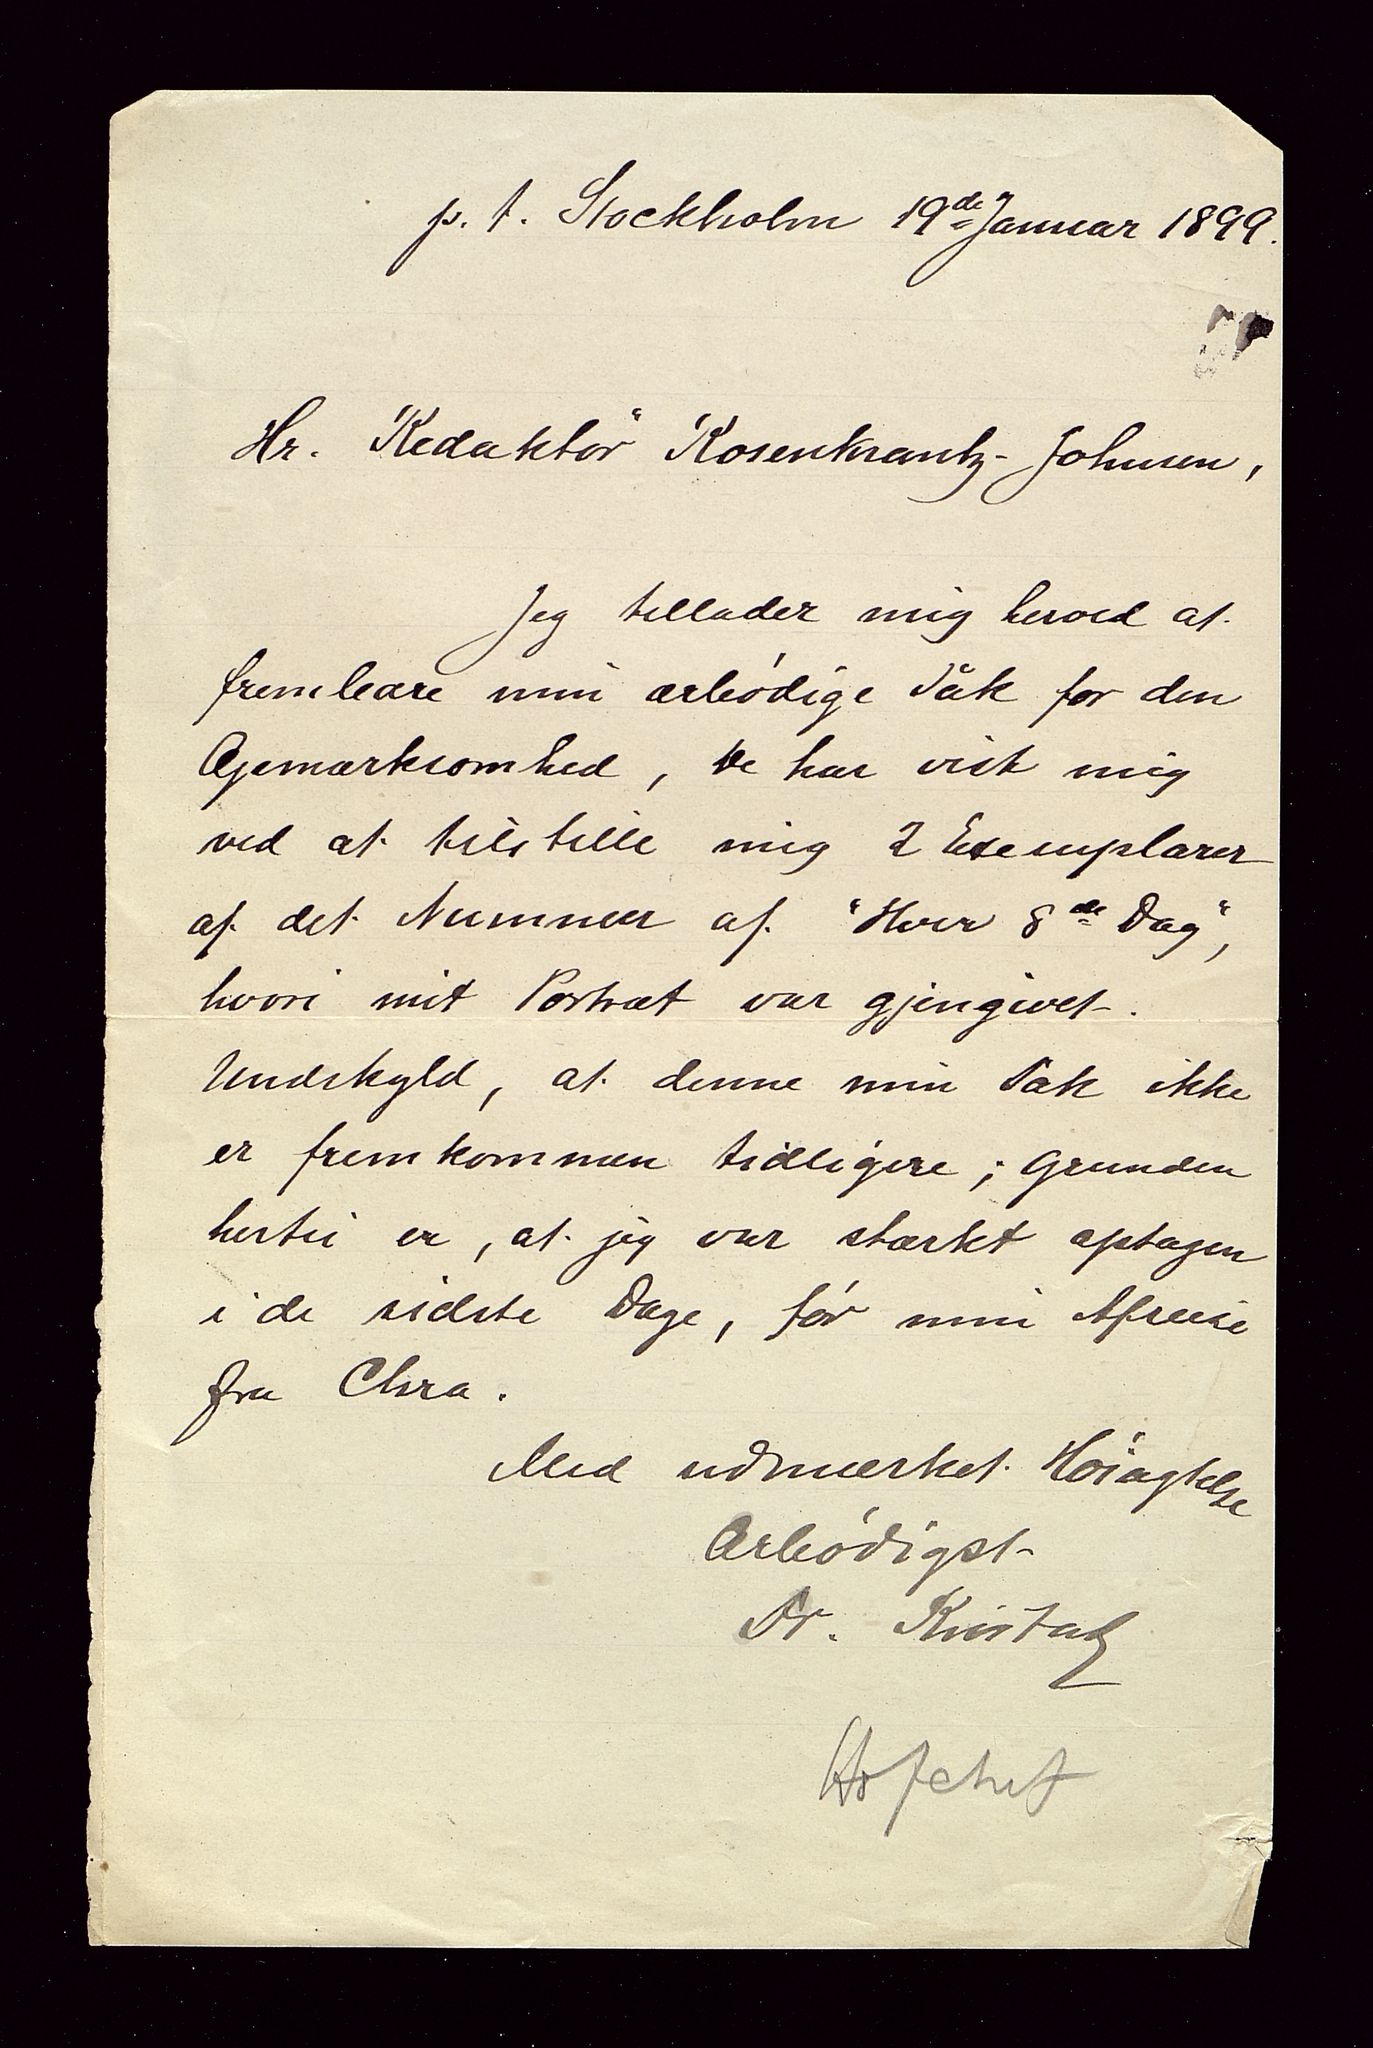 p. t. Stockholm 19de Januar 1899.
Hr. Redaktör Rosenkrantz-Johnsen,
Jeg tillader mig herved at
frembære min ærbødige Tak for den
Opmærksomhed, De har vist mig
ved at tilstille mig 2 Exemplarer
af det Nummer af "Hver 8de Dag",
hvori mit Portræt var gjengivet.
Undskyld, at denne min Tak ikke
er fremkommen tidligere; Grunden
hertil er, at jeg var stærkt optagen
i de sidste Dage, før min Afreise
fra Chra.
Med udmærket Høiagtelse
Ærbødigst
Hofchef